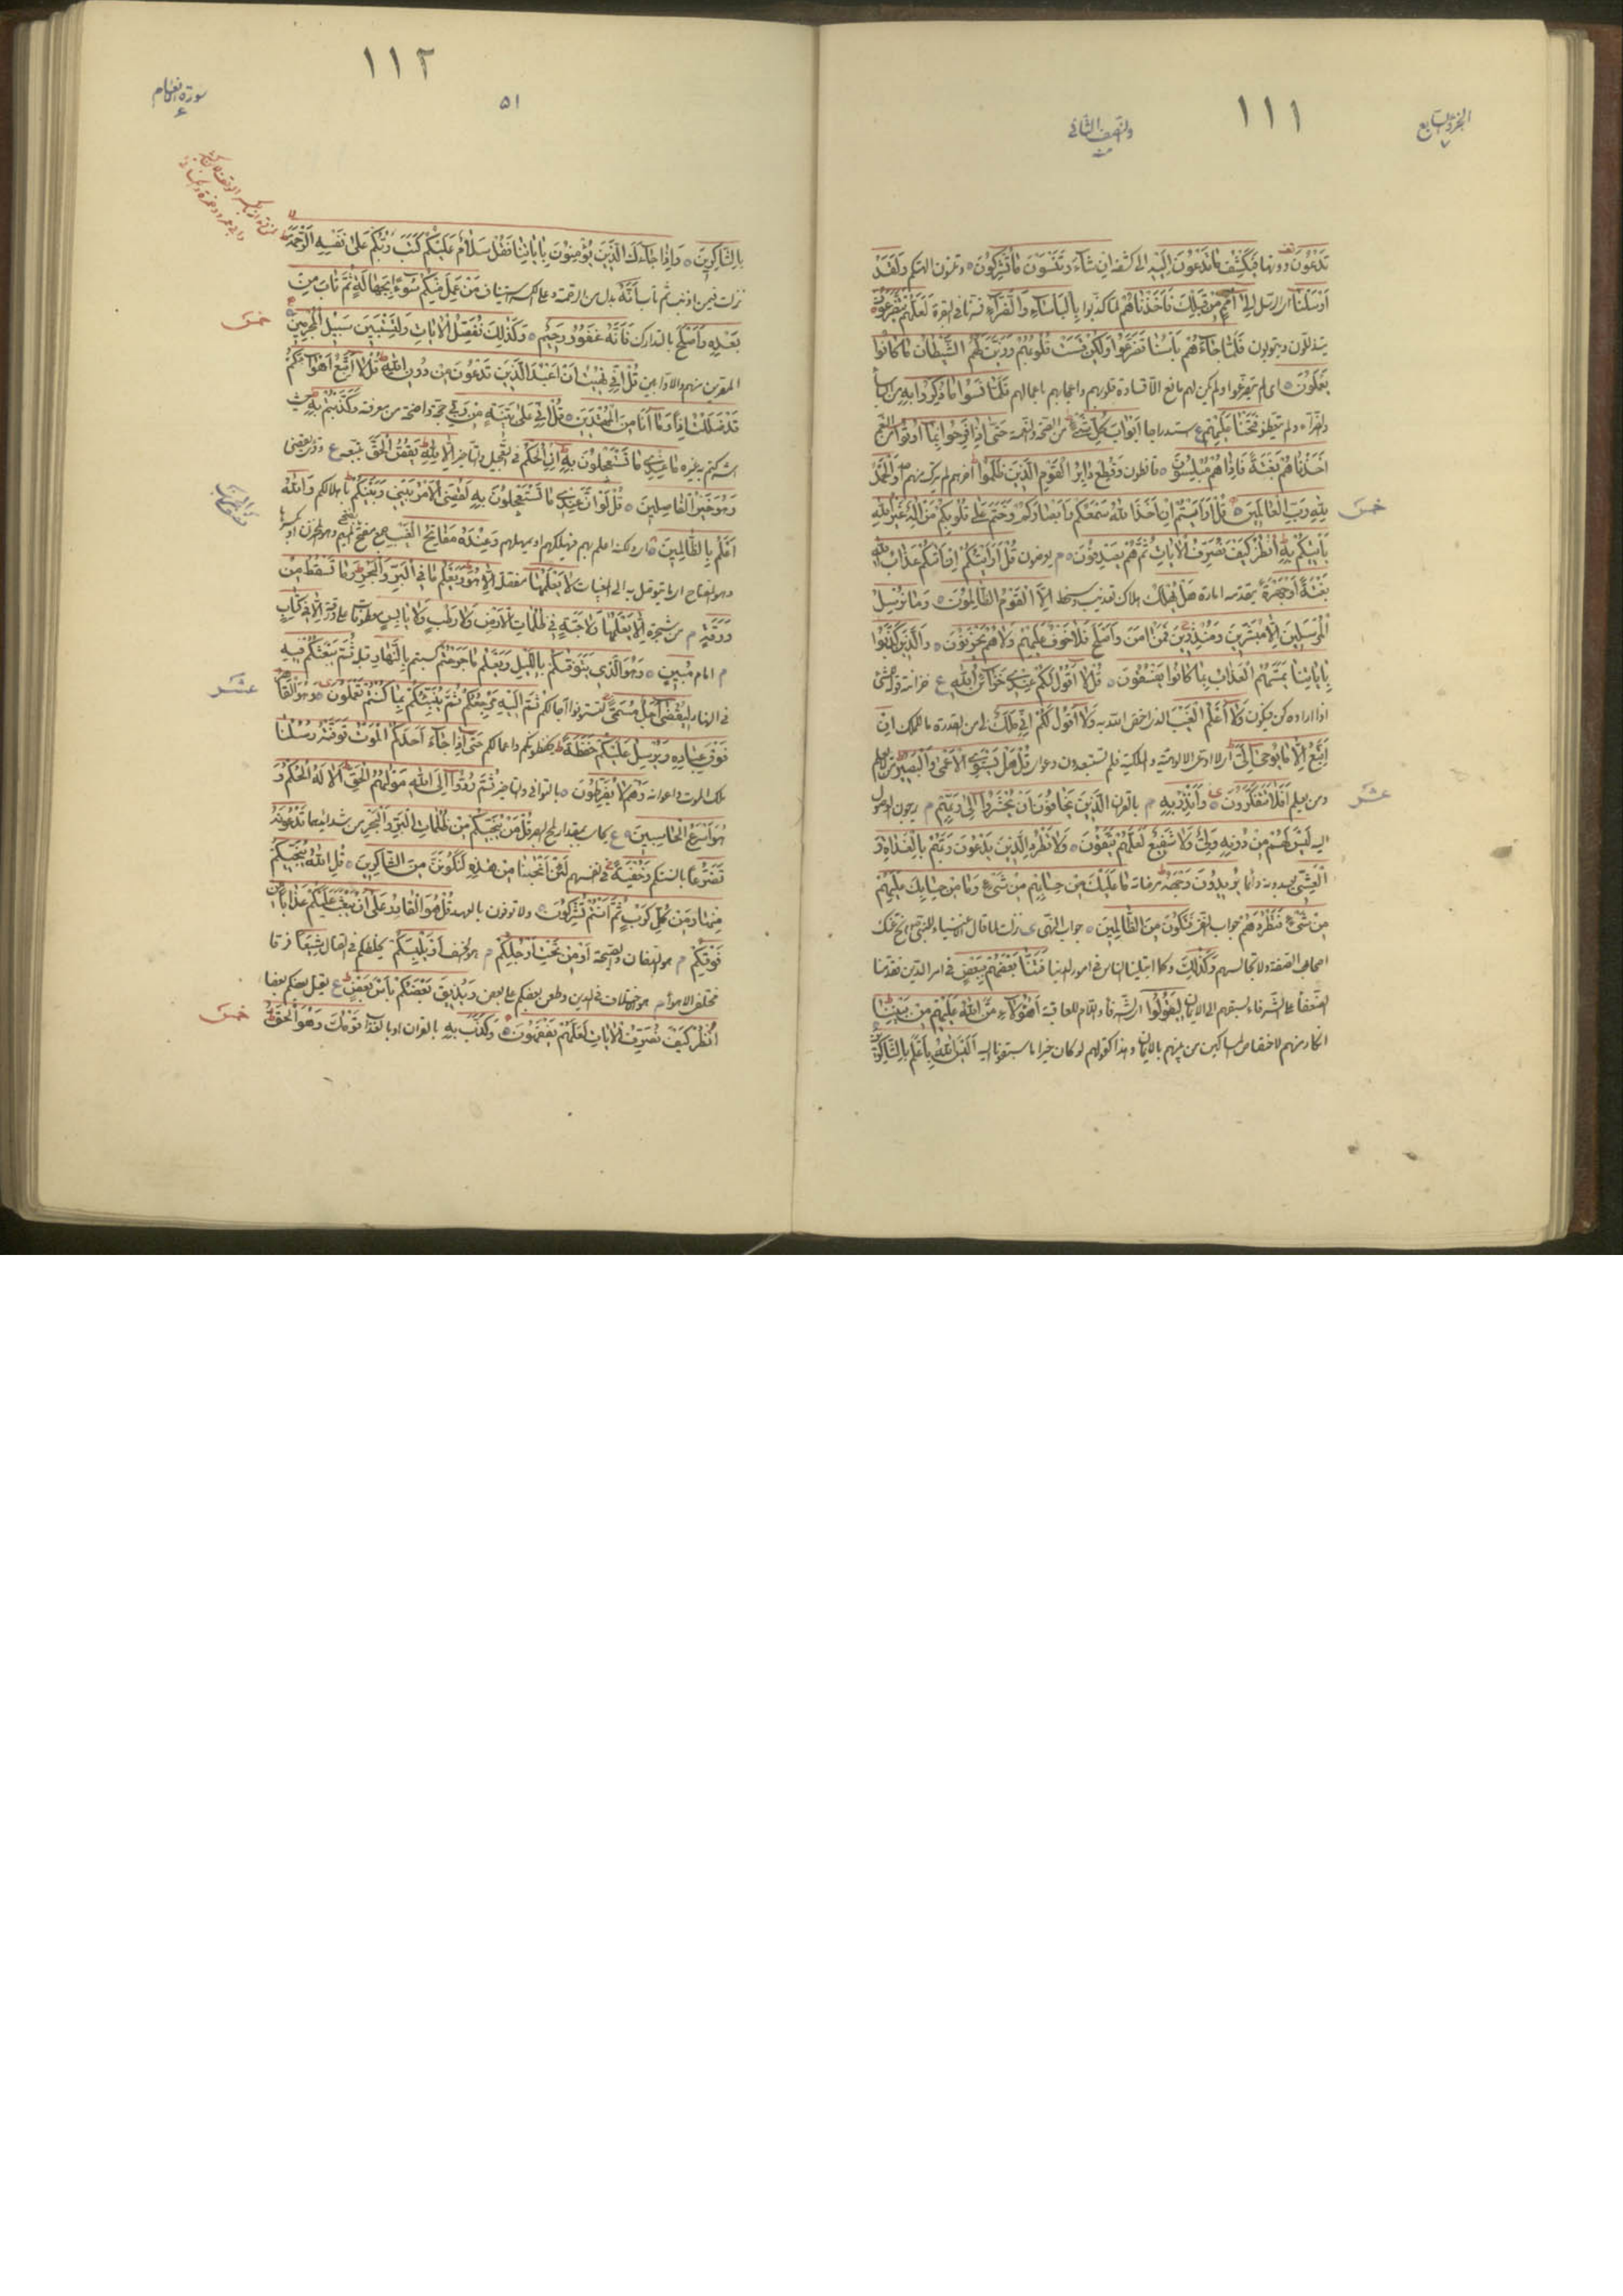 ١١١
الجزء السابع
٧
والنصف الثاني
تَدْعُونَ دونها فَيَكْشِفُ مَا تَدْعُونَ إِلَيْهِ الى كشفه إِنْ شَاءَ وَتَنْسَوْنَ مَا تُشْرِكُونَ ٥ وتتركون الهتكم وَلَقَدْ
أَرْسَلْنَا الرسل إِلَى أُمَمٍ مِنْ قَبْلِكَ فَأَخَذْنَاهُمْ لما كذبوا بِالْبَأْسَاءِ وَالضَّرَّاءِ لَعَلَّهُمْ يَتَضَرَّعُونَ
يتذللون ويتوبون فَلَوْلَا إِذْ جَاءَهُمْ بَأْسُنَا تَضَرَّعُوا وَلَكِنْ قَسَتْ قُلُوبُهُمْ وَزَيَّنَ لَهُمُ الشَّيْطَانُ مَا كَانُوا
يَعْمَلُونَ ٥ اى لم يتضرعوا ولم يكن لهم مانع الا قساوة قلوبهم واعجابهم باعمالهم فَلَمَّا نَسُوا مَا ذُكِّرُوا بِهِ من البأساء
والضراء ولم يتعظوا فَتَحْنَا عَلَيْهِمْ استدراجا أَبْوَابَ كُلِّ شَيْءٍ من الصحة والنعمة حَتَّى إِذَا فَرِحُوا بِمَا أُوتُوا من النعم
أَخَذْنَاهُمْ بَغْتَةً فَإِذَا هُمْ مُبْلِسُونَ ٥ قانطون فَقُطِعَ دَابِرُ الْقَوْمِ الَّذِينَ ظَلَمُوا اخرهم لم يترك منهم وَالْحَمْدُ
لِلَّهِ رَبِّ الْعَالَمِينَ ٥ قُلْ أَرَأَيْتُمْ إِنْ أَخَذَ اللَّهُ سَمْعَكُمْ وَأَبْصَارَكُمْ وَخَتَمَ عَلَى قُلُوبِكُمْ مَنْ إِلَهٌ غَيْرُ اللَّهِ
خمس
يَأْتِيكُمْ بِهِ انْظُرْ كَيْفَ نُصَرِّفُ الْآيَاتِ ثُمَّ هُمْ يَصْدِفُونَ ٥ م يعرضون قُلْ أَرَأَيْتَكُمْ إِنْ أَتَاكُمْ عَذَابُ اللَّهِ
بَغْتَةً أَوْ جَهْرَةً يتقدمه امارة هَلْ يُهْلَكُ هلاك تعذيب وسخط إِلَّا الْقَوْمُ الظَّالِمُونَ ٥ وَمَا نُرْسِلُ
الْمُرْسَلِينَ إِلَّا مُبَشِّرِينَ وَمُنْذِرِينَ فَمَنْ آمَنَ وَأَصْلَحَ فَلَا خَوْفٌ عَلَيْهِمْ وَلَا هُمْ يَحْزَنُونَ ٥ وَالَّذِينَ كَذَّبُوا
بِآيَاتِنَا يَمَسُّهُمُ الْعَذَابُ بِمَا كَانُوا يَفْسُقُونَ ٥ قُلْ لَا أَقُولُ لَكُمْ عِنْدِي خَزَائِنُ اللَّهِ ع خزانته قوله لشئ
اذا اراده كن فيكون وَلَا أَعْلَمُ الْغَيْبَ الذى اختص الله به وَلَا أَقُولُ لَكُمْ إِنِّي مَلَكٌ لى من القدرة ما للملك إِنْ
أَتَّبِعُ إِلَّا مَا يُوحَى إِلَيَّ اى لا ادعى الالوهية والملكية فلم تستبعدون دعواى قُلْ هَلْ يَسْتَوِي الْأَعْمَى وَالْبَصِيرُ من لا يعلم
ومن يعلم أَفَلَا تَتَفَكَّرُونَ ٥ وَأَنْذِرْ بِهِ م بالقران الَّذِينَ يَخَافُونَ أَنْ يُحْشَرُوا إِلَى رَبِّهِمْ م يرجون الوصول
عشر
اليه لَيْسَ لَهُمْ مِنْ دُونِهِ وَلِيٌّ وَلَا شَفِيعٌ لَعَلَّهُمْ يَتَّقُونَ ٥ وَلَا تَطْرُدِ الَّذِينَ يَدْعُونَ رَبَّهُمْ بِالْغَدَاةِ وَ
الْعَشِيِّ يعبدونه دائما يُرِيدُونَ وَجْهَهُ مرضاته مَا عَلَيْكَ مِنْ حِسَابِهِمْ مِنْ شَيْءٍ وَمَا مِنْ حِسَابِكَ عَلَيْهِمْ
مِنْ شَيْءٍ فَتَطْرُدَهُمْ جواب النفى فَتَكُونَ مِنَ الظَّالِمِينَ ٥ جواب النهى نزلت لما قال اغنياء للنبى نح عنك
اصحاب الصفة ولا تجالسهم وَكَذَلِكَ وكما ابتلينا الناس فى امور الدنيا فَتَنَّا بَعْضَهُمْ بِبَعْضٍ فى امر الدين فقدمنا
الضعفاء على الشرفاء بسبقهم الى الايمان لِيَقُولُوا اى الشرفاء واللام للعاقبة أَهَؤُلَاءِ مَنَّ اللَّهُ عَلَيْهِمْ مِنْ بَيْنِنَا
انكار منهم لاختصاص المساكين من بينهم بالايمان وهذا كقولهم لو كان خيرا ما سبقونا اليه أَلَيْسَ اللَّهُ بِأَعْلَمَ بِالشَّاكِرِينَ
١١٢
٥١
سورة الانعام
٦
بِالشَّاكِرِينَ ٥ وَإِذَا جَاءَكَ الَّذِينَ يُؤْمِنُونَ بِآيَاتِنَا فَقُلْ سَلَامٌ عَلَيْكُمْ كَتَبَ رَبُّكُمْ عَلَى نَفْسِهِ الرَّحْمَةَ
نزلت فيمن اذنب ثم تاب أَنَّهُ بدل من الرحمة وعلى الكسر استيناف مَنْ عَمِلَ مِنْكُمْ سُوءًا بِجَهَالَةٍ ثُمَّ تَابَ مِنْ
بَعْدِهِ وَأَصْلَحَ بالتدارك فَأَنَّهُ غَفُورٌ رَحِيمٌ ٥ وَكَذَلِكَ نُفَصِّلُ الْآيَاتِ وَلِتَسْتَبِينَ سَبِيلُ الْمُجْرِمِينَ
خمس
المصرين منهم والاوابين قُلْ إِنِّي نُهِيتُ أَنْ أَعْبُدَ الَّذِينَ تَدْعُونَ مِنْ دُونِ اللَّهِ قُلْ لَا أَتَّبِعُ أَهْوَاءَكُمْ
قَدْ ضَلَلْتُ إِذًا وَمَا أَنَا مِنَ الْمُهْتَدِينَ ٥ قُلْ إِنِّي عَلَى بَيِّنَةٍ مِنْ رَبِّي حجة واضحة من معرفته وَكَذَّبْتُمْ بِهِ حيث
اشركتم به غيره مَا عِنْدِي مَا تَسْتَعْجِلُونَ بِهِ إِنِ الْحُكْمُ فى التعجيل والتاخير إِلَّا لِلَّهِ يَقُصُّ الْحَقَّ يتبعه ع وقرئ يقضى
وَهُوَ خَيْرُ الْفَاصِلِينَ ٥ قُلْ لَوْ أَنَّ عِنْدِي مَا تَسْتَعْجِلُونَ بِهِ لَقُضِيَ الْأَمْرُ بَيْنِي وَبَيْنَكُمْ باهلاككم وَاللَّهُ
أَعْلَمُ بِالظَّالِمِينَ ٥ اى ولكنه اعلم بهم فيهلكهم او يمهلهم وَعِنْدَهُ مَفَاتِحُ الْغَيْبِ جمع مفتح بفتح الميم وهو المخزن او بكسرها
وهو المفتاح اى ما يتوصل به الى المغيبات لَا يَعْلَمُهَا مفصلة إِلَّا هُوَ وَيَعْلَمُ مَا فِي الْبَرِّ وَالْبَحْرِ وَمَا تَسْقُطُ مِنْ
وَرَقَةٍ م من شجرة إِلَّا يَعْلَمُهَا وَلَا حَبَّةٍ فِي ظُلُمَاتِ الْأَرْضِ وَلَا رَطْبٍ وَلَا يَابِسٍ معطوفات على ورقة إِلَّا فِي كِتَابٍ
م امام مُبِينٍ ٥ وَهُوَ الَّذِي يَتَوَفَّاكُمْ بِاللَّيْلِ وَيَعْلَمُ مَا جَرَحْتُمْ كسبتم بِالنَّهَارِ قبله ثُمَّ يَبْعَثُكُمْ فِيهِ
فى النهار لِيُقْضَى أَجَلٌ مُسَمًّى لتستوفوا اجالكم ثُمَّ إِلَيْهِ مَرْجِعُكُمْ ثُمَّ يُنَبِّئُكُمْ بِمَا كُنْتُمْ تَعْمَلُونَ ٥ وَهُوَ الْقَاهِرُ
عشر
فَوْقَ عِبَادِهِ وَيُرْسِلُ عَلَيْكُمْ حَفَظَةً يحفظونكم واعمالكم حَتَّى إِذَا جَاءَ أَحَدَكُمُ الْمَوْتُ تَوَفَّتْهُ رُسُلُنَا
ملك الموت واعوانه وَهُمْ لَا يُفَرِّطُونَ ٥ بالتوانى والتاخير ثُمَّ رُدُّوا إِلَى اللَّهِ مَوْلَاهُمُ الْحَقِّ أَلَا لَهُ الْحُكْمُ وَ
هُوَ أَسْرَعُ الْحَاسِبِينَ ٥ ع قُلْ مَنْ يُنَجِّيكُمْ مِنْ ظُلُمَاتِ الْبَرِّ وَالْبَحْرِ من شدائدهما تَدْعُونَهُ
تَضَرُّعًا بالسنتكم وَخُفْيَةً فى انفسهم لَئِنْ أَنْجَيْتَنَا مِنْ هَذِهِ لَنَكُونَنَّ مِنَ الشَّاكِرِينَ ٥ قُلِ اللَّهُ يُنَجِّيكُمْ
مِنْهَا وَمِنْ كُلِّ كَرْبٍ ثُمَّ أَنْتُمْ تُشْرِكُونَ ٥ ولا توفون بالعهد قُلْ هُوَ الْقَادِرُ عَلَى أَنْ يَبْعَثَ عَلَيْكُمْ عَذَابًا مِنْ
فَوْقِكُمْ م هو الطوفان والصيحة أَوْ مِنْ تَحْتِ أَرْجُلِكُمْ م هو الخسف أَوْ يَلْبِسَكُمْ يخلطكم فى القتال شِيَعًا فرقا
مختلفى الاهواء م هو اختلاف فى الدين وطعن بعضكم على بعض وَيُذِيقَ بَعْضَكُمْ بَأْسَ بَعْضٍ ع يقتل بعضكم بعضا
انْظُرْ كَيْفَ نُصَرِّفُ الْآيَاتِ لَعَلَّهُمْ يَفْقَهُونَ ٥ وَكَذَّبَ بِهِ بالقران او بالعذاب قَوْمُكَ وَهُوَ الْحَقُّ
خمس